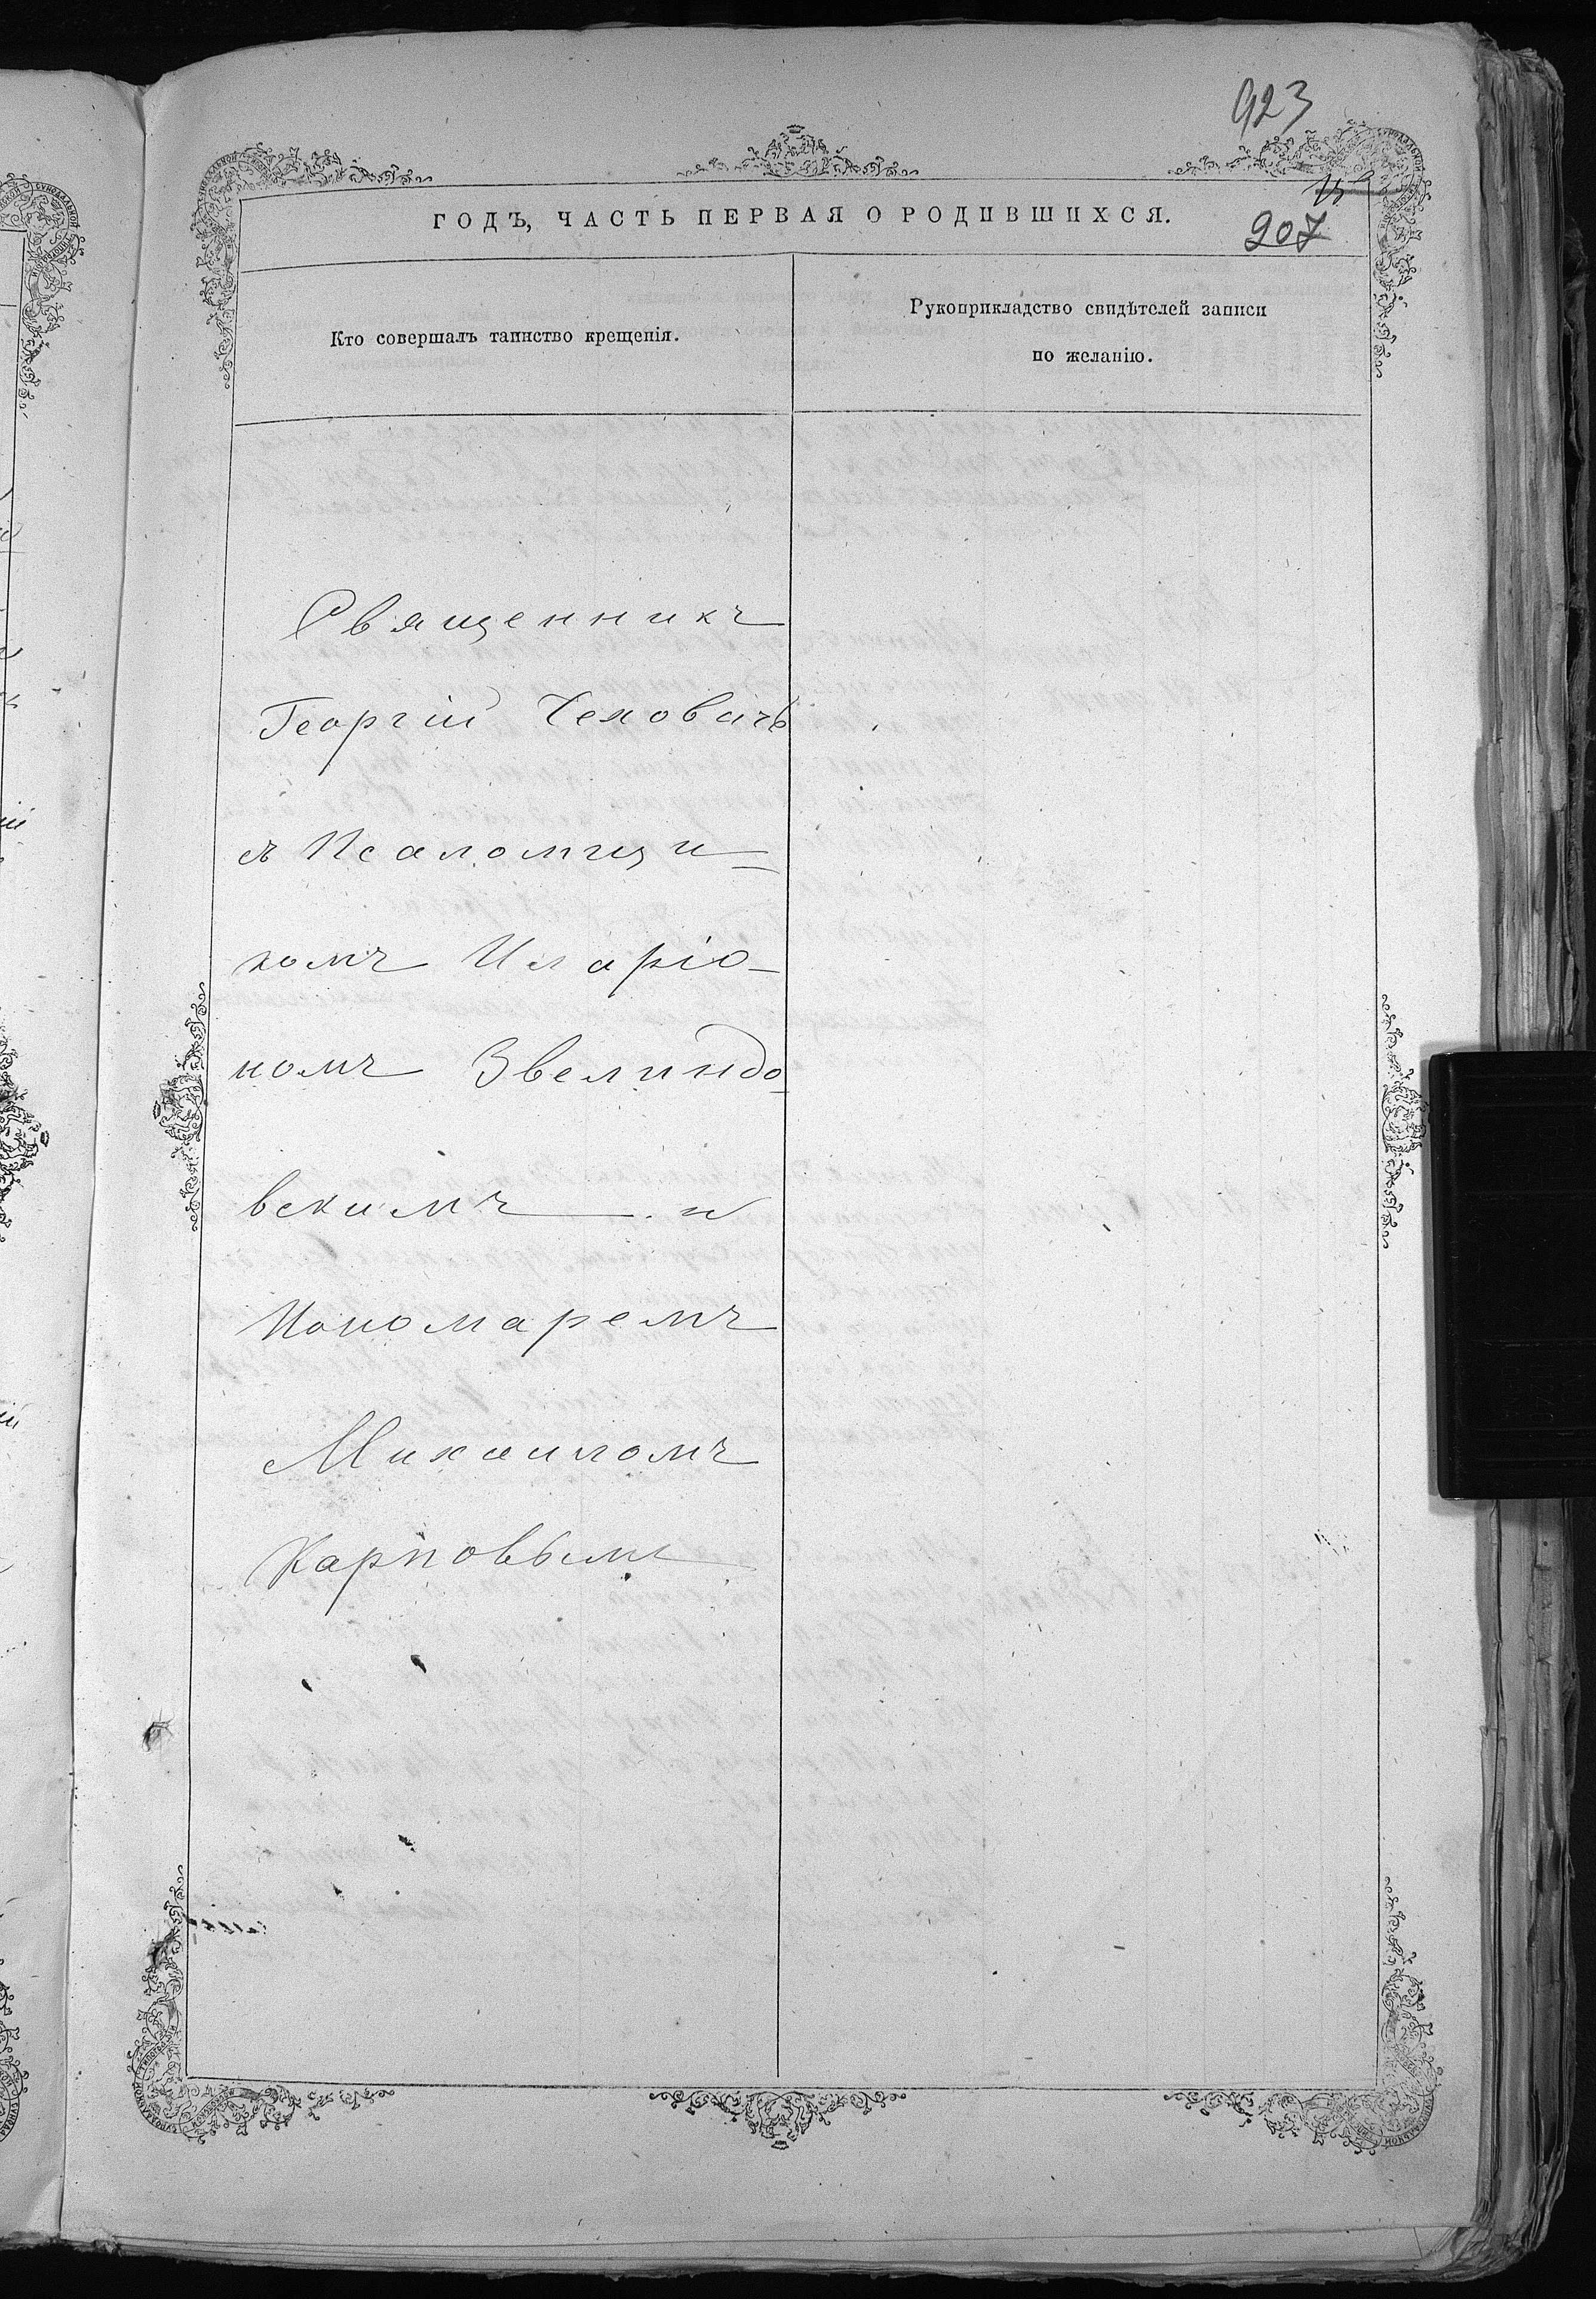 923
207
ГОДЪ, ЧАСТЬ ПЕРВАЯ О РОДИВШИХСЯ.
Кто совершалъ таинство крещенія.
Рукоприкладство свидѣтелей записи
по желанію.
Священникъ
Георгій Чеховичъ
съ Псаломщи=
комъ Иларіо-
номъ Звелиндо-
вскимъ и
Пономаремъ
Михаиломъ
Карповымъ